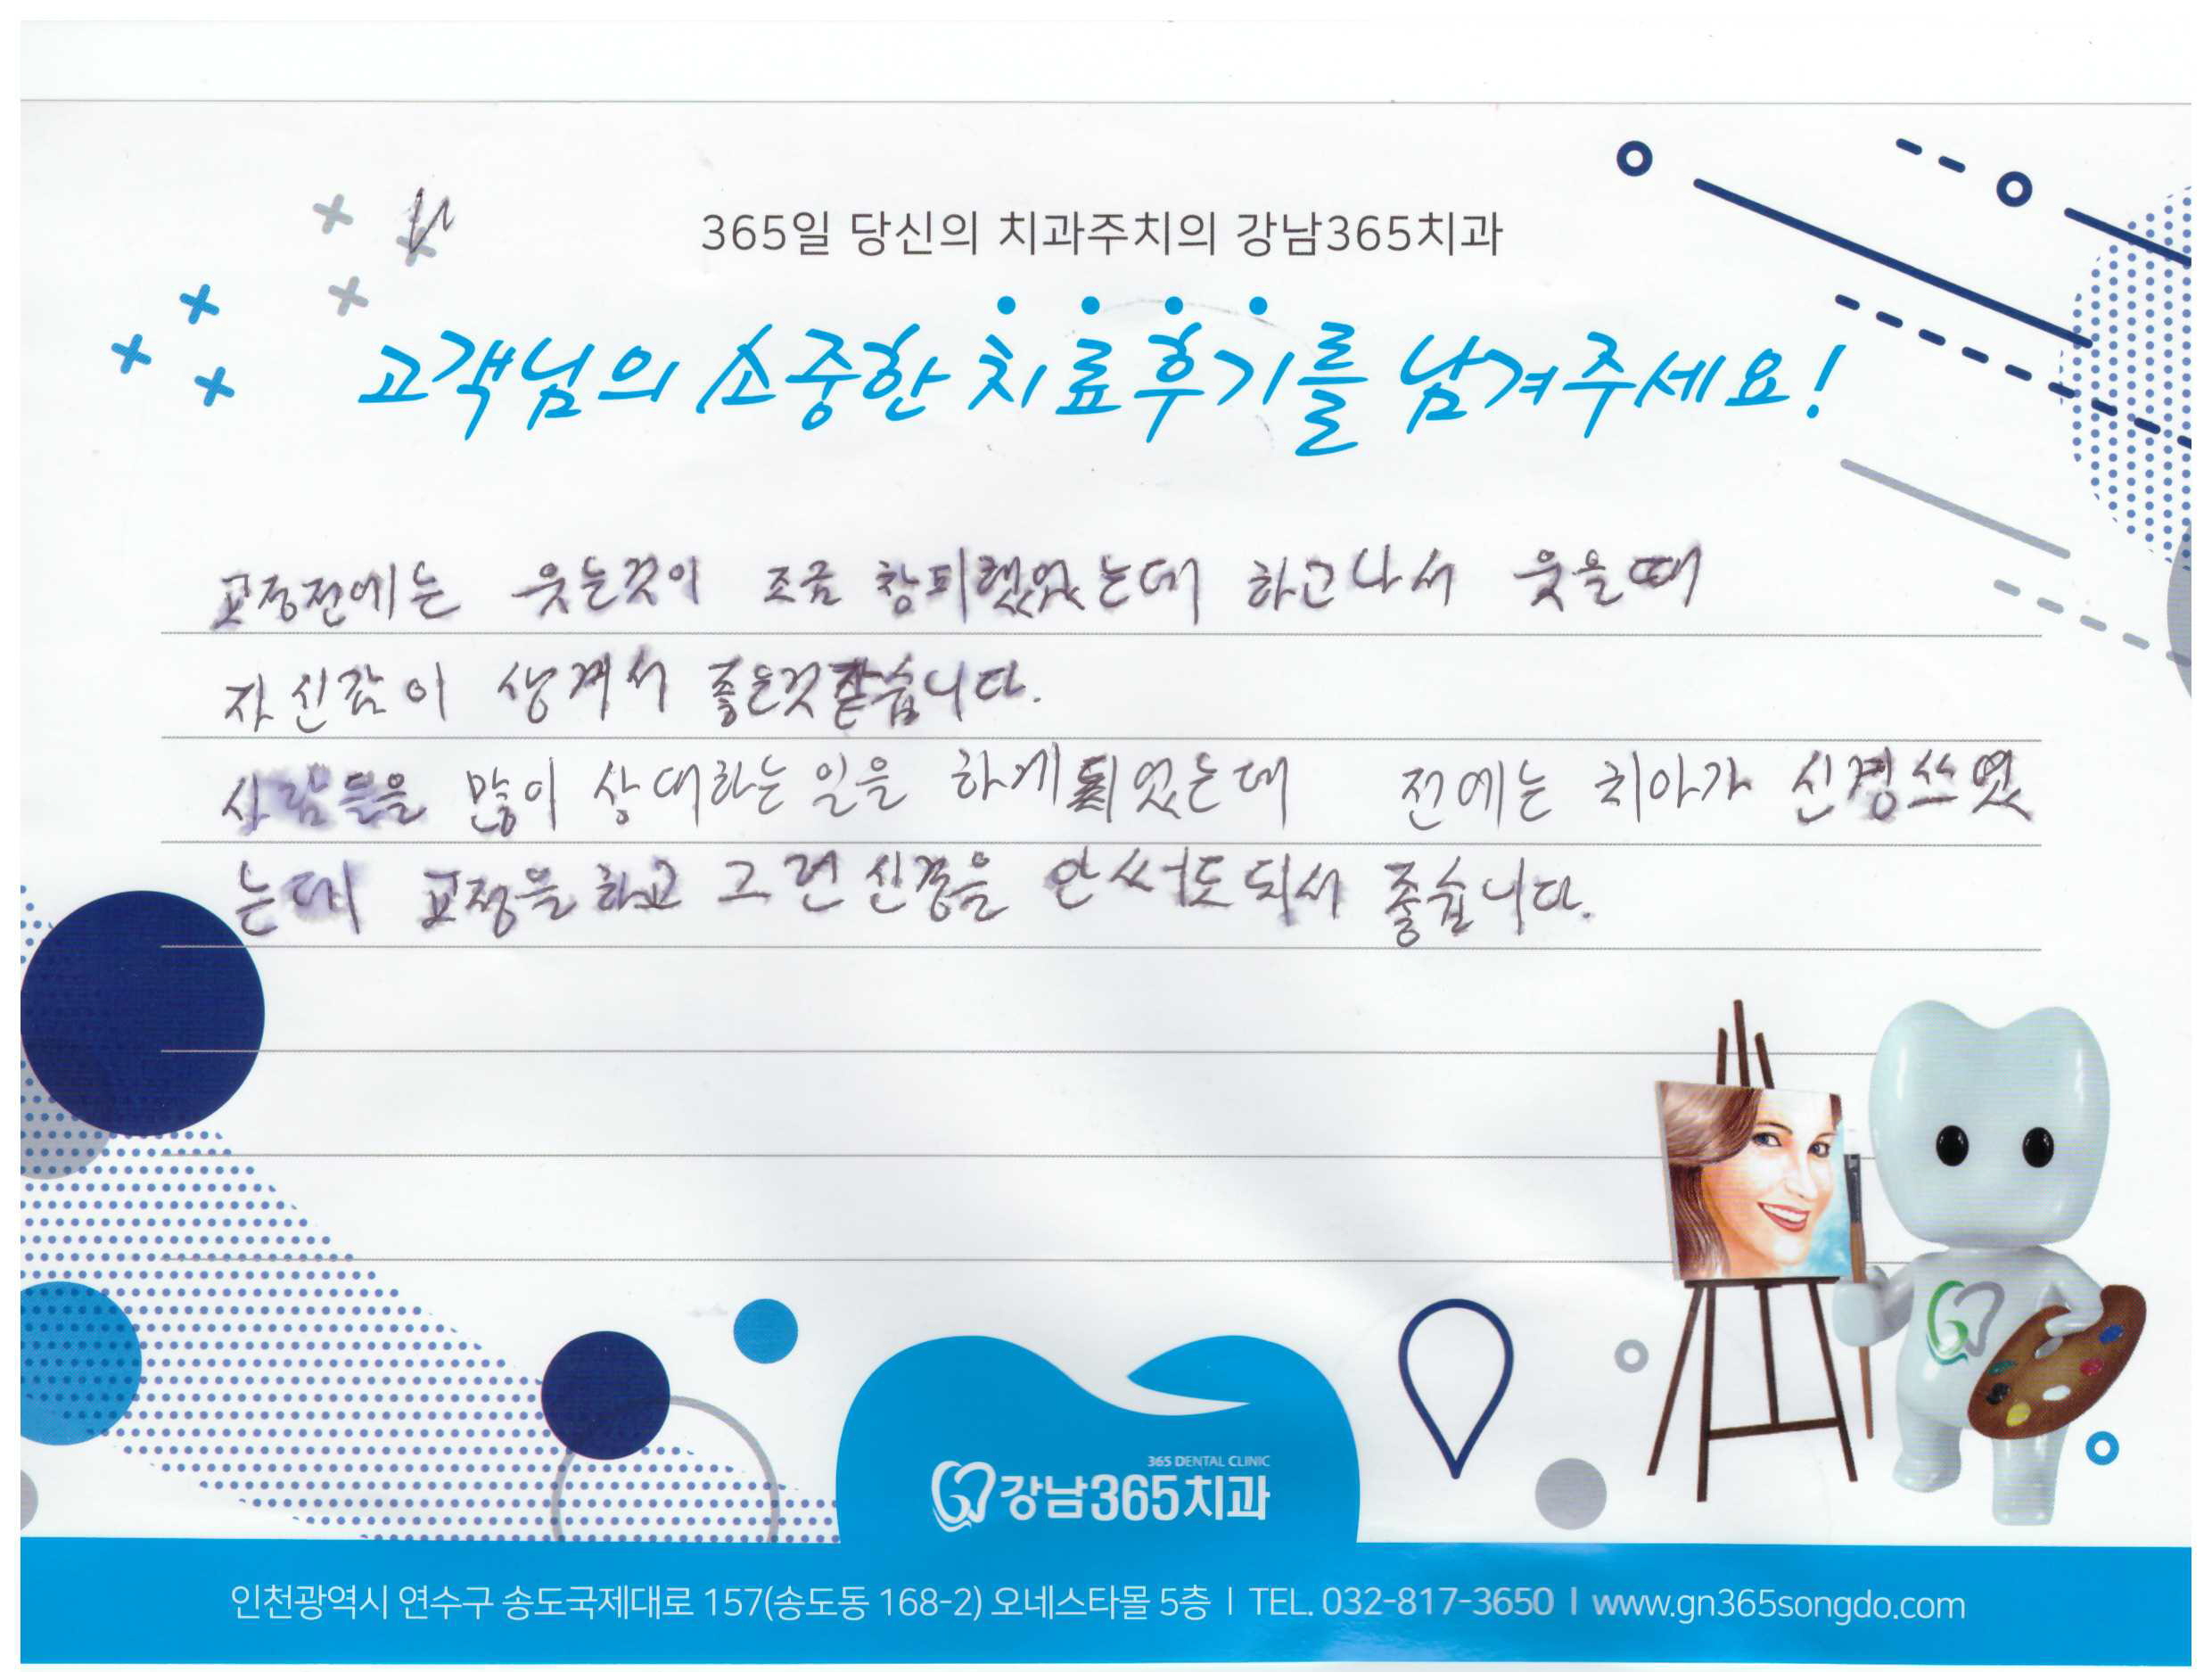 365일 당신의 치과주치의 강남365치과
고객님의 소중한 치료후기를 남겨주세요!
교정전에는 웃는것이 조금 창피했었는데 하고나서 웃을때
자신감이 생겨서 좋은것같습니다.
사람들을 많이 상대하는 일을 하게되었는데 전에는 치아가 신경쓰였
는데 교정을 하고 그런 신경을 안써도되서 좋습니다.
365 DENTAL CLINIC
강남365치과
인천광역시 연수구 송도국제대로 157(송도동 168-2) 오네스타몰 5층 | TEL. 032-817-3650 | www.gn365songdo.com